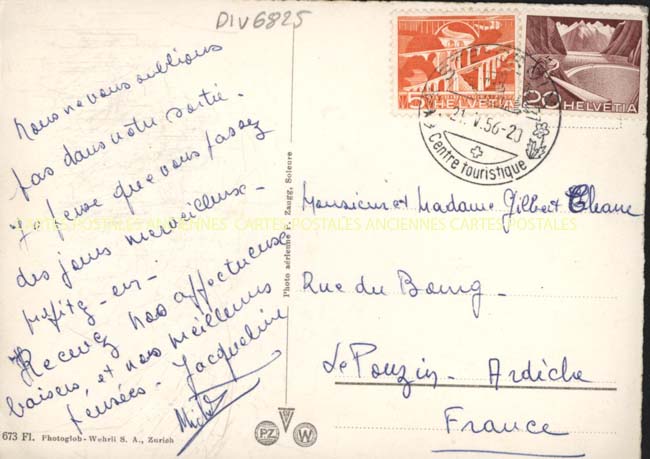 DIV6825
Nous ne vous oublions
pas dans notre sortie.
Je pense que vous passez
des jours merveilleux -
profitez-en -
Recevez nos affectueux
baisers, et nos meilleures
pensées - Jacqueline
673 Fl. Photoglob-Wehrli S. A., Zurich
Photo aérienne P. Zaugg, Soleure
PZ
W
5
HELVETIA
20
HELVETIA
21. V. 56-20
Centre touristique
Monsieur et Madame Gilbert
Rue du Bourg -
Le Pouzin - Ardèche
France
CARTES POSTALES ANCIENNES CARTES POSTALES ANCIENNES CARTES POSTALES